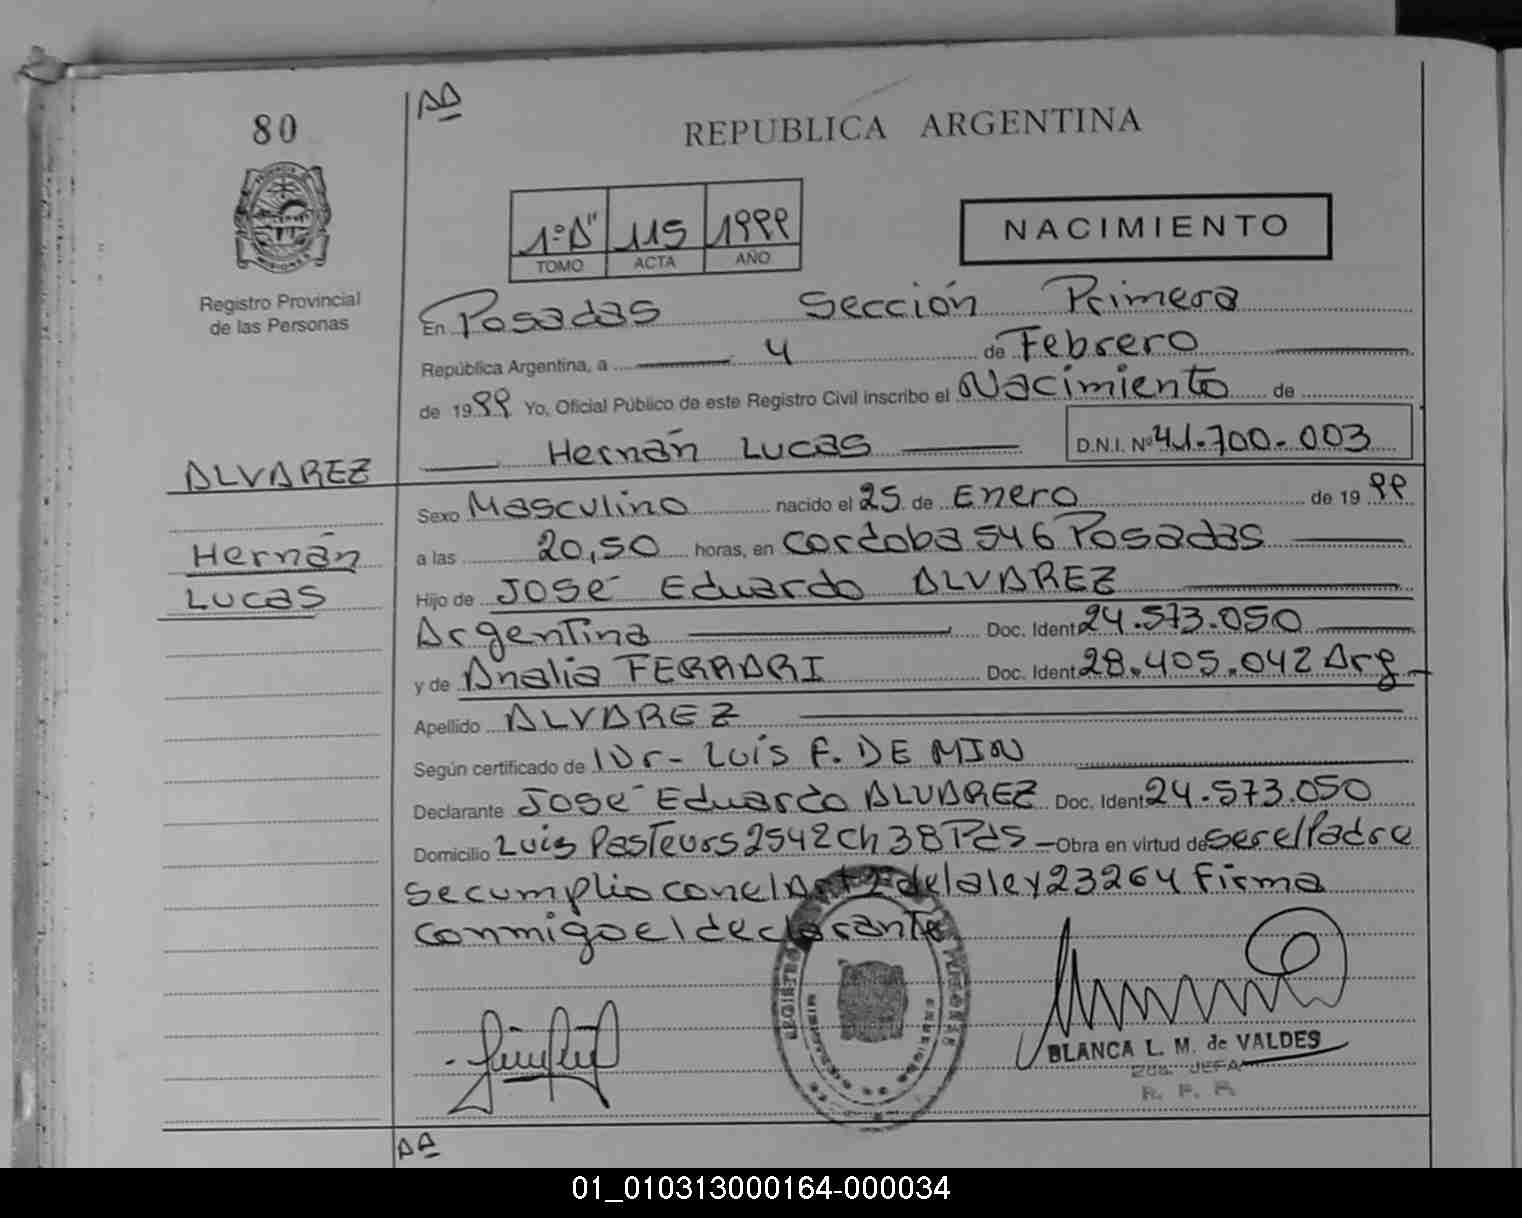 80
AA
REPUBLICA ARGENTINA
1º A" 115 1999
TOMO ACTA AÑO
NACIMIENTO
Registro Provincial
de las Personas
En Posadas Sección Primera
República Argentina, a 4 de Febrero
de 1999 Yo, Oficial Público de este Registro Civil inscribo el Nacimiento de
Hernán Lucas D.N.I. Nº 41.700.003
ALVAREZ
Hernán
Lucas
Sexo Masculino nacido el 25 de Enero de 1999
a las 20,50 horas, en Cordoba 546 Posadas
Hijo de José Eduardo ALVAREZ
Argentina Doc. Ident 24.573.050
y de Analia FERRARI Doc. Ident 28.405.042 Arg
Apellido ALVAREZ
Según certificado de Dr- Luis F. DE MIN
Declarante José Eduardo ALVAREZ Doc. Ident 24.573.050
Domicilio Luis Pasteurs 2542 Ch 38 Pds - Obra en virtud de ser el Padre
se cumplio con el Art 2 de la ley 23264 Firma
conmigo el declarante
BLANCA L. M. de VALDES
2da. JEFA
R. P. P.
AA
01_010313000164-000034